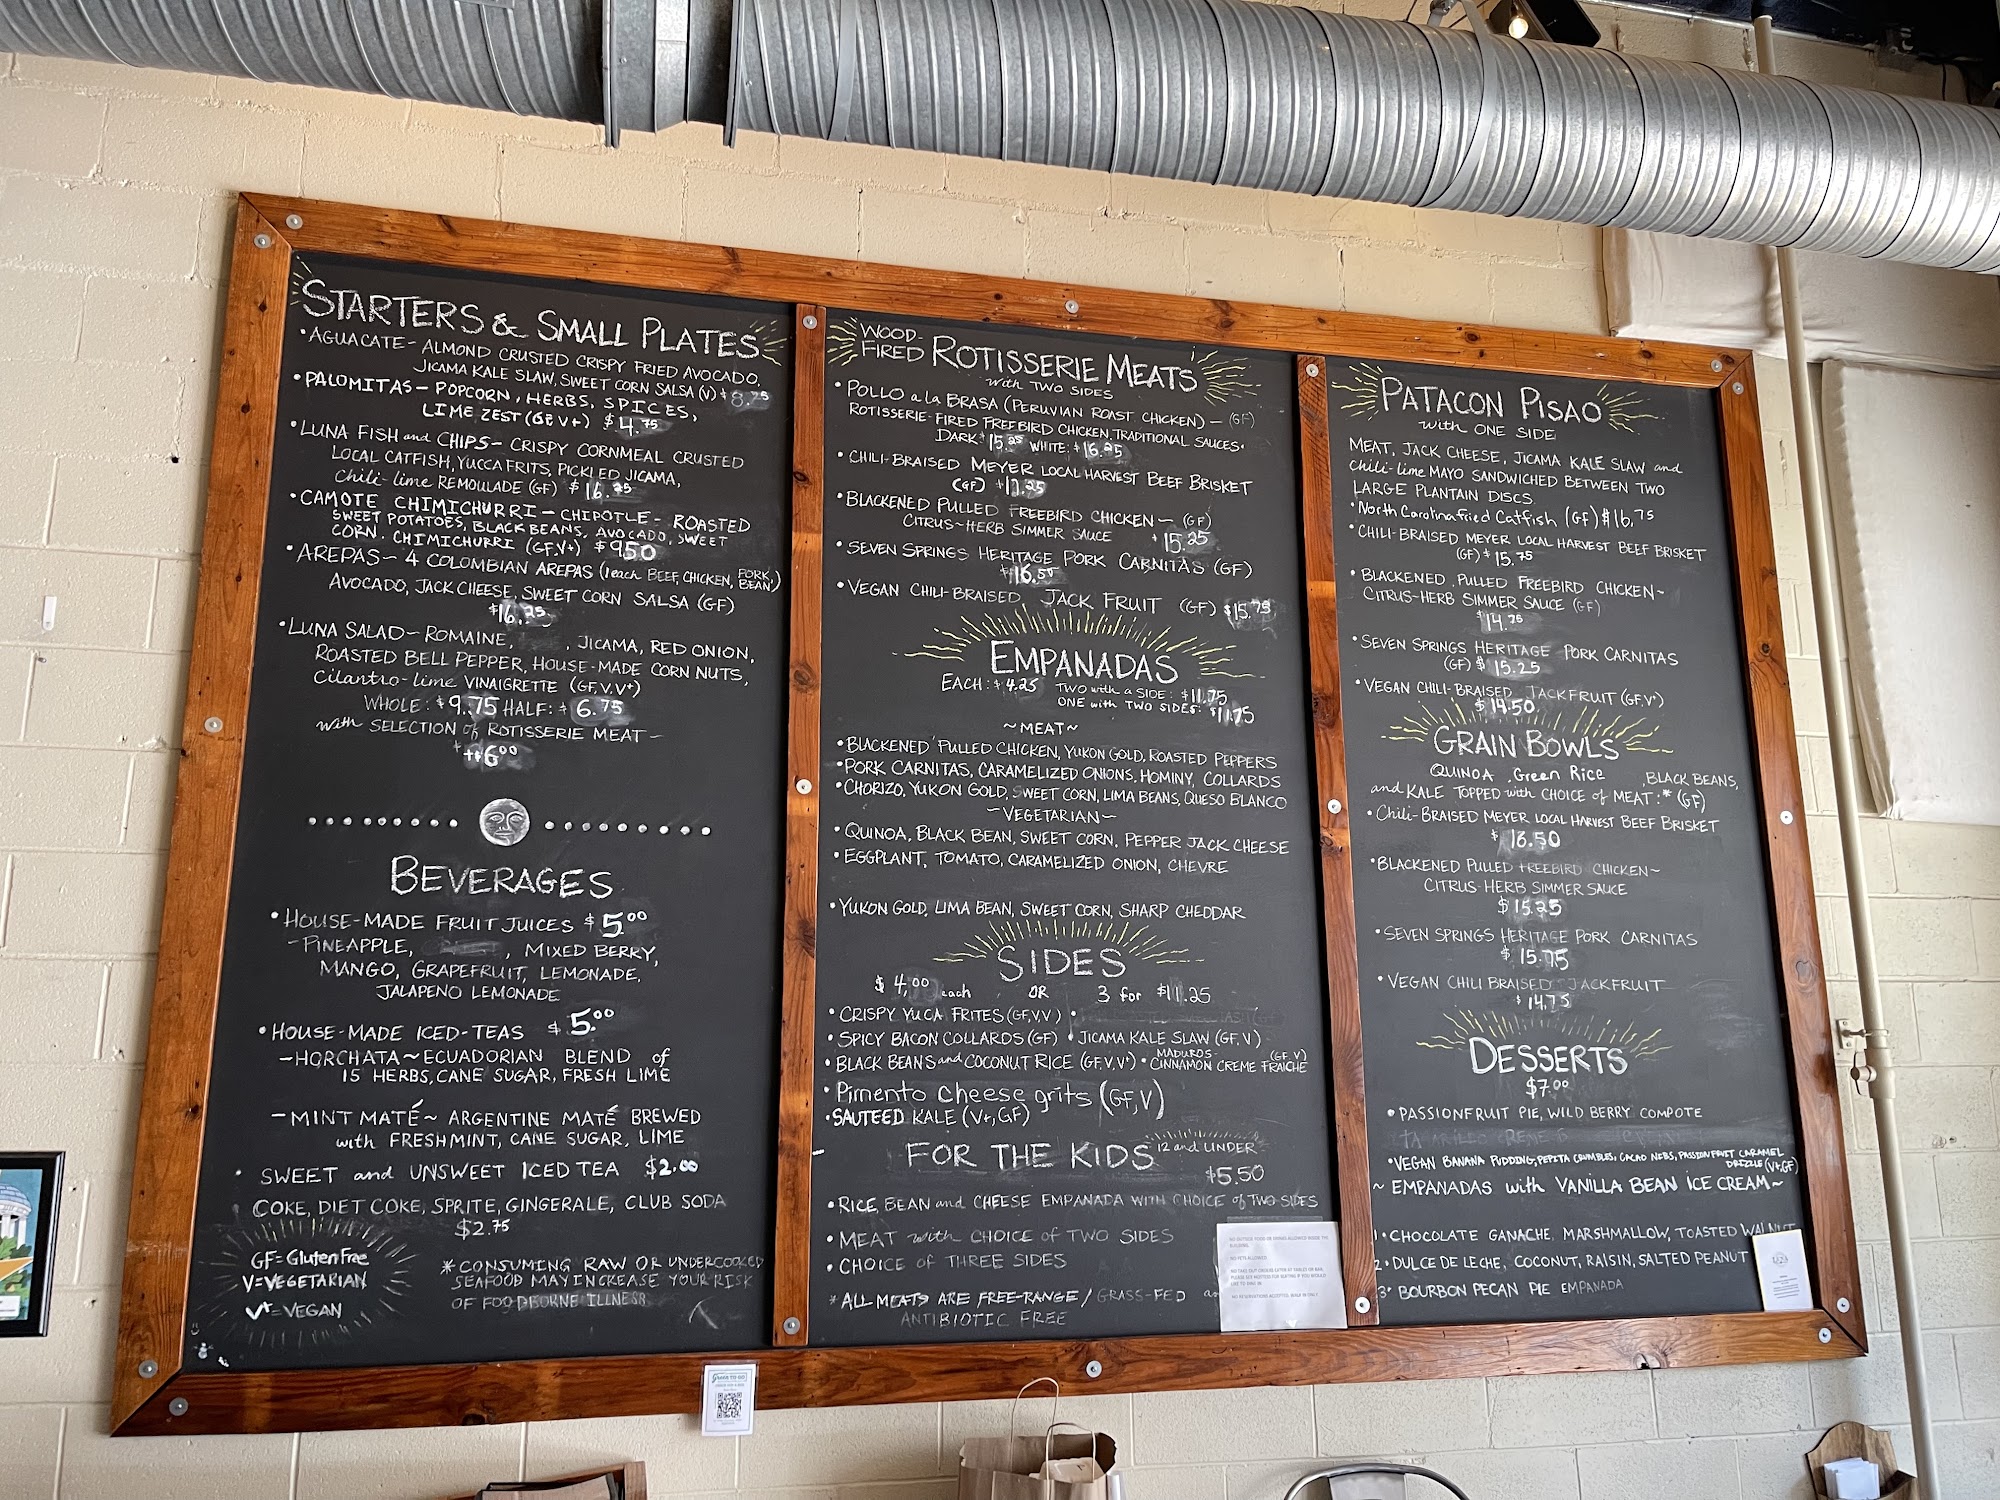 STARTERS & SMALL PLATES
• AGUACATE - ALMOND CRUSTED CRISPY FRIED AVOCADO,
JICAMA KALE SLAW, SWEET CORN SALSA (V) $8.75
• PALOMITAS - POPCORN, HERBS, SPICES,
LIME ZEST (GF, V+) $4.75
• LUNA FISH and CHIPS - CRISPY CORNMEAL CRUSTED
LOCAL CATFISH, YUCCA FRITS, PICKLED JICAMA,
Chili-lime REMOULADE (GF) $16.25
• CAMOTE CHIMICHURRI - CHIPOTLE - ROASTED
SWEET POTATOES, BLACK BEANS, AVOCADO, SWEET
CORN. CHIMICHURRI (GF, V+) $9.50
• AREPAS ~ 4 COLOMBIAN AREPAS (1 each BEEF, CHICKEN, PORK, BEAN)
AVOCADO, JACK CHEESE, SWEET CORN SALSA (GF)
$16.25
• LUNA SALAD ~ ROMAINE, , JICAMA, RED ONION,
ROASTED BELL PEPPER, HOUSE-MADE CORN NUTS,
Cilantro-lime VINAIGRETTE (GF, V, V+)
WHOLE: $9.75 HALF: $6.75
with SELECTION of ROTISSERIE MEAT ~
6.00
BEVERAGES
• HOUSE-MADE FRUIT JUICES $5.00
- PINEAPPLE, , MIXED BERRY,
MANGO, GRAPEFRUIT, LEMONADE,
JALAPENO LEMONADE
• HOUSE-MADE ICED-TEAS $5.00
- HORCHATA ~ ECUADORIAN BLEND of
15 HERBS, CANE SUGAR, FRESH LIME
- MINT MATÉ ~ ARGENTINE MATÉ BREWED
with FRESH MINT, CANE SUGAR, LIME
• SWEET and UNSWEET ICED TEA $2.00
COKE, DIET COKE, SPRITE, GINGERALE, CLUB SODA
$2.75
GF = Gluten Free
V = VEGETARIAN
V+ = VEGAN
* CONSUMING RAW OR UNDERCOOKED
SEAFOOD MAY INCREASE YOUR RISK
OF FOODBORNE ILLNESS
WOOD-
FIRED ROTISSERIE MEATS
with TWO SIDES
• POLLO a la BRASA (PERUVIAN ROAST CHICKEN) - (GF)
ROTISSERIE-FIRED FREEBIRD CHICKEN, TRADITIONAL SAUCES.
DARK $15.25 WHITE: $16.25
• CHILI-BRAISED MEYER LOCAL HARVEST BEEF BRISKET
(GF) $17.25
• BLACKENED PULLED FREEBIRD CHICKEN ~ (GF)
CITRUS-HERB SIMMER SAUCE $15.25
• SEVEN SPRINGS HERITAGE PORK CARNITAS (GF)
$16.50
• VEGAN CHILI-BRAISED JACK FRUIT (GF) $15.75
EMPANADAS
EACH: $4.25 TWO with a SIDE: $11.75
ONE with TWO SIDES: $11.75
~ MEAT ~
• BLACKENED PULLED CHICKEN, YUKON GOLD, ROASTED PEPPERS
• PORK CARNITAS, CARAMELIZED ONIONS, HOMINY, COLLARDS
• CHORIZO, YUKON GOLD, SWEET CORN, LIMA BEANS, QUESO BLANCO
~ VEGETARIAN ~
• QUINOA, BLACK BEAN, SWEET CORN, PEPPER JACK CHEESE
• EGGPLANT, TOMATO, CARAMELIZED ONION, CHEVRE
• YUKON GOLD, LIMA BEAN, SWEET CORN, SHARP CHEDDAR
SIDES
$4.00 each OR 3 for $11.25
• CRISPY YUCA FRITES (GF, V, V)
• SPICY BACON COLLARDS (GF) • JICAMA KALE SLAW (GF, V)
• BLACK BEANS and COCONUT RICE (GF, V, V+) • MADUROS - CINNAMON CREME FRAICHE (GF, V)
• Pimento cheese grits (GF, V)
• SAUTEED KALE (V+, GF)
FOR THE KIDS 12 and UNDER
$5.50
• RICE, BEAN and CHEESE EMPANADA WITH CHOICE of TWO SIDES
• MEAT with CHOICE of TWO SIDES
• CHOICE OF THREE SIDES
* ALL MEATS ARE FREE-RANGE / GRASS-FED
ANTIBIOTIC FREE
PATACON PISAO
with ONE SIDE
MEAT, JACK CHEESE, JICAMA KALE SLAW and
chili-lime MAYO SANDWICHED BETWEEN TWO
LARGE PLANTAIN DISCS
• North Carolina fried Catfish (GF) $16.75
• CHILI-BRAISED MEYER LOCAL HARVEST BEEF BRISKET
(GF) $15.75
• BLACKENED PULLED FREEBIRD CHICKEN ~
CITRUS-HERB SIMMER SAUCE (GF)
$14.75
• SEVEN SPRINGS HERITAGE PORK CARNITAS
(GF) $15.25
• VEGAN CHILI-BRAISED JACKFRUIT (GF, V+)
$14.50
GRAIN BOWLS
QUINOA, Green Rice , BLACK BEANS,
and KALE TOPPED with CHOICE of MEAT: * (GF)
• Chili-BRAISED MEYER LOCAL HARVEST BEEF BRISKET
$16.50
• BLACKENED PULLED FREEBIRD CHICKEN ~
CITRUS-HERB SIMMER SAUCE
$15.25
• SEVEN SPRINGS HERITAGE PORK CARNITAS
$15.75
• VEGAN CHILI BRAISED JACKFRUIT
$14.75
DESSERTS
$7.00
• PASSIONFRUIT PIE, WILD BERRY COMPOTE
• VEGAN BANANA PUDDING, PEPITA CRUMBLES, CACAO NIBS, PASSION FRUIT CARAMEL
DRIZZLE (V+, GF)
~ EMPANADAS with VANILLA BEAN ICE CREAM ~
1 • CHOCOLATE GANACHE, MARSHMALLOW, TOASTED WALNUT
2 • DULCE DE LECHE, COCONUT, RAISIN, SALTED PEANUT
3 • BOURBON PECAN PIE EMPANADA